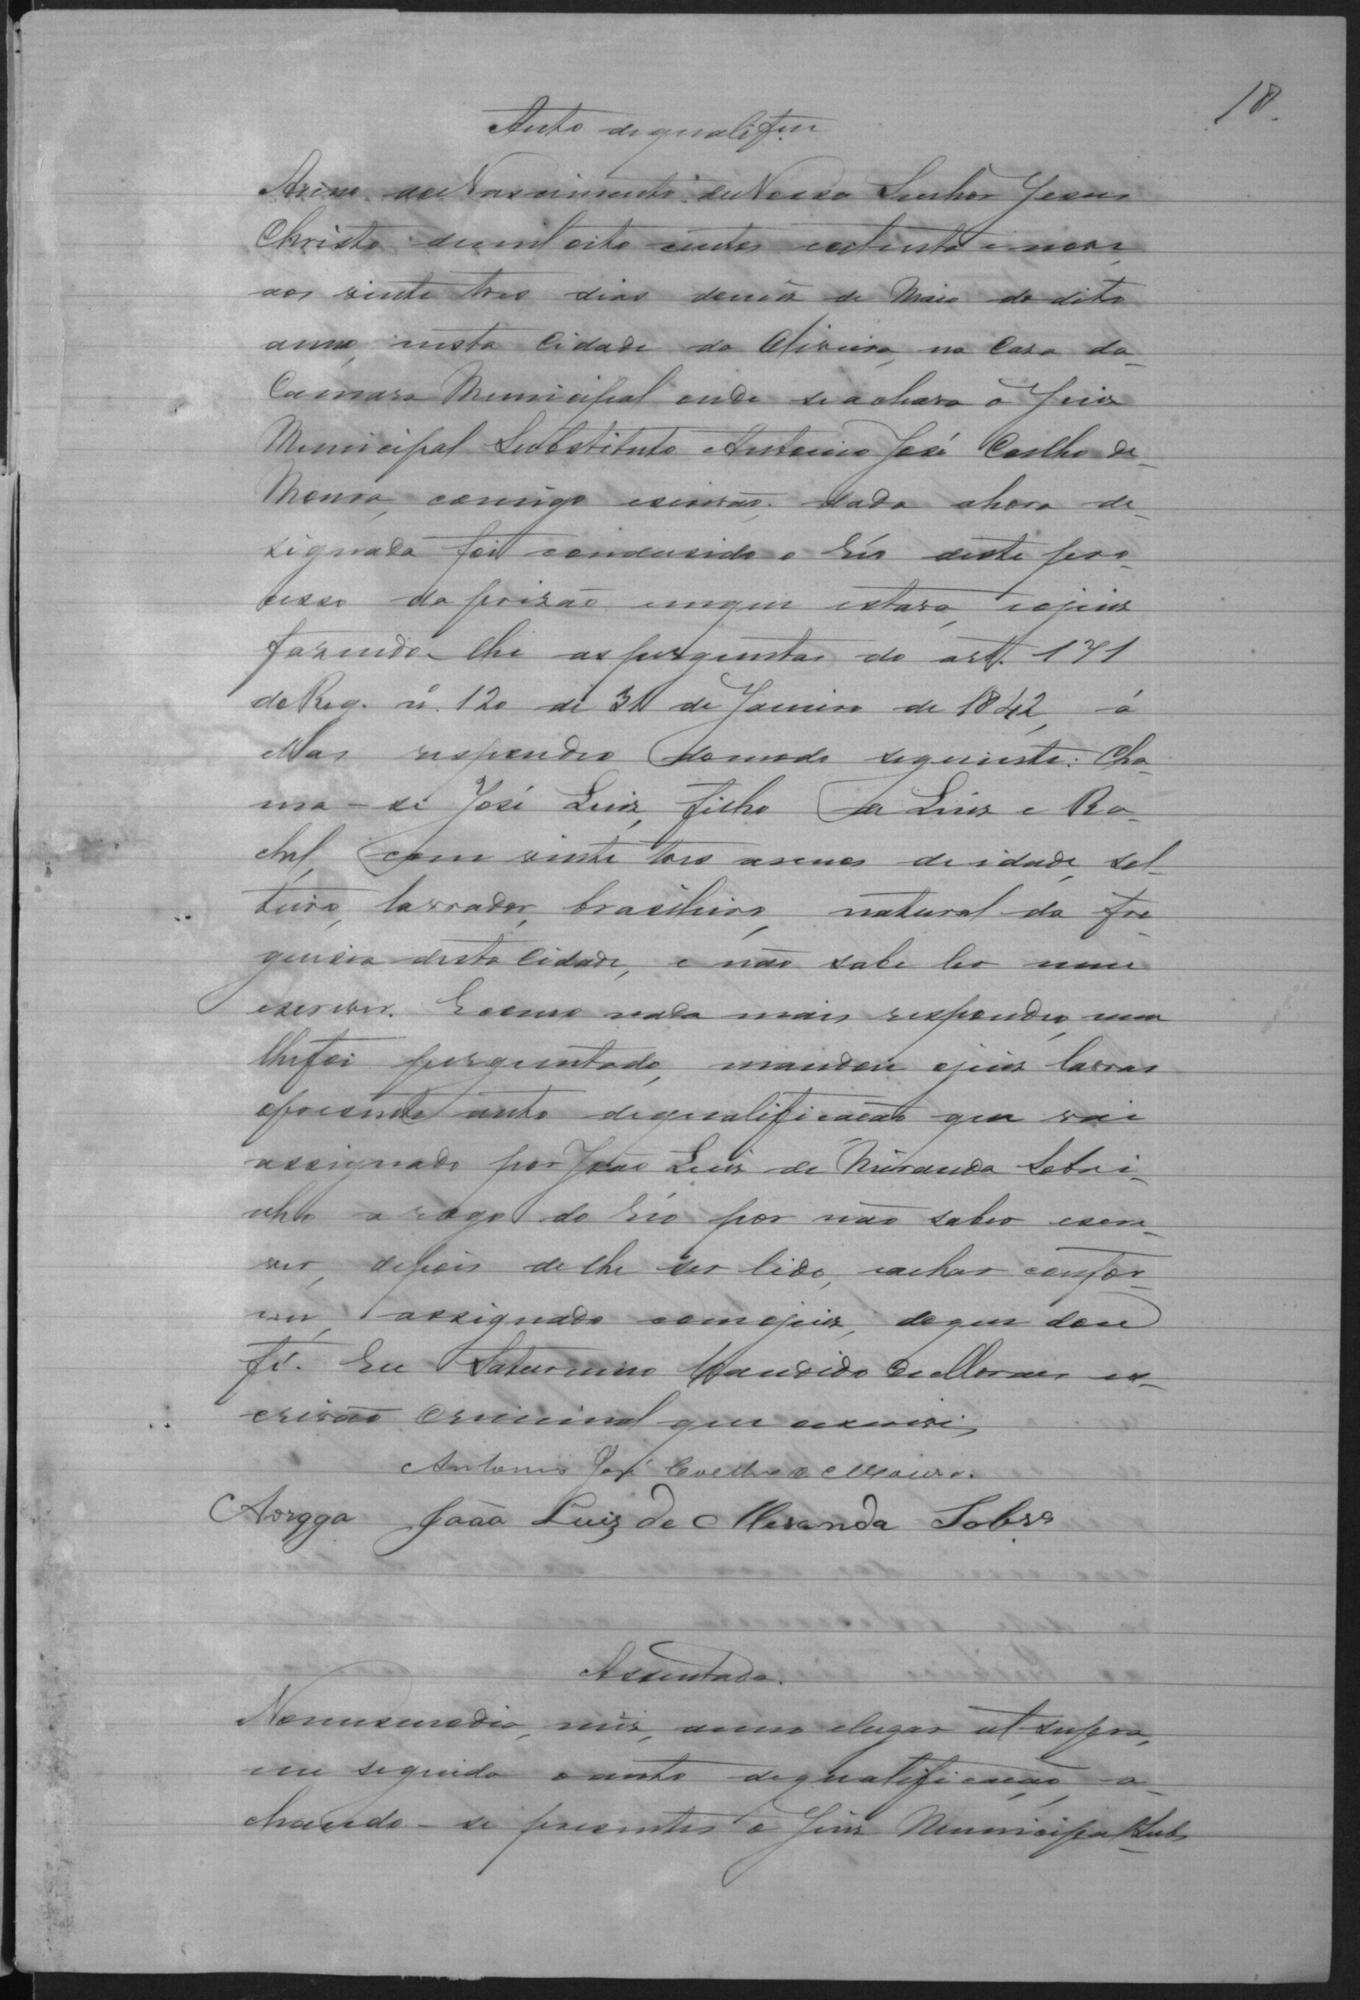 18.
Auto de qualifm
Anno do Nascimento de Nosso Senhor Jesus
Christo de mil oito centos oitenta e nove,
aos vinte tres dias do mez de Maio do dito
anno, nesta Cidade da Oliveira, na Casa da
Camara Municipal onde se achava o Juiz
Municipal Substituto Antonio José Coelho de
Moura, comigo escrivão, dada ahora de-
signada foi condusido o Réo deste pro-
cesso da prizão em que estava, e o juiz
fazendo-lhe as perguntas do art. 171
do Reg. nº. 120 de 31 de Janeiro de 1842, á
ellas respondeo do modo seguinte: Cha-
ma-se José Luiz, filho de Luiz e Ra-
chel, com vinte tres annos de idade, sol-
teiro, lavrador, brasileiro, natural da fre
guesia desta Cidade, e não sabe ler nem
escrever. E como nada mais respondeo, nem
lhe foi perguntado, mandou o juiz lavrar
o presente auto de qualificação que vai
assignado por João Luiz de Miranda Sobri-
nho a rogo do Réo por não saber escre-
ver, depois de lhe ser lido, e achar confor-
me, assignado com o juiz, do que dou
fé. Eu Saturnino Candido de Moraes es-
crivão Criminal que escrevi,
Antonio José Coelho de Moura.
Aorggo João Luiz de Meranda Sobro
Assentada.
No mesmo dia, mez, anno e lugar ut supra,
em seguida o auto de qualificação, a-
chando-se presentes o Juiz Municipal Subs